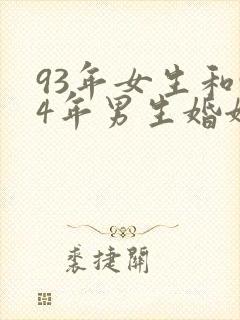 93年女生和
4年男生婚
裘捷開